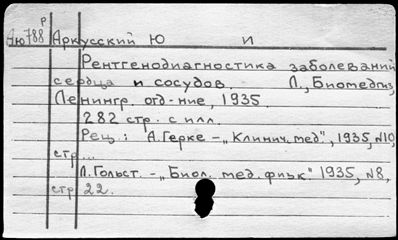 р
Аю788 Аркусский Ю И
Рентгенодиагностика заболеваний
сердца и сосудов. Л., Биомедгиз,
Ленингр. отд-ние, 1935.
282 стр. с илл.
Рец.: А. Герке – „Клинич. мед", 1935, N10,
стр...
Л. Гольст. – „Биол. мед. физк." 1935, N8,
стр 22.